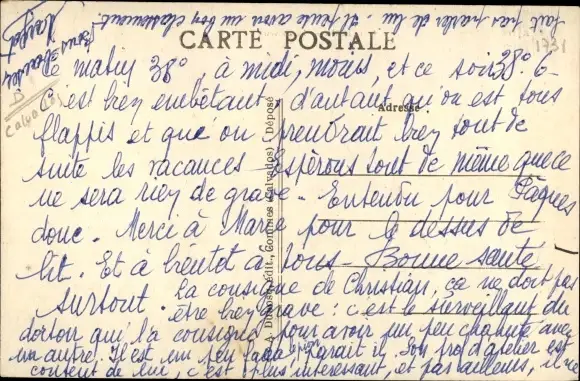 CARTE POSTALE
Adresse
Ce matin 38° à midi, moins, et ce soir 38°6-
C'est bien embêtant, d'autant qu'on est tous
flappis et que on prendrait bien tout de
suite les vacances - Espérons tout de même que ce
ne sera rien de grave. Entendu pour Pâques
donc. Merci à Marie pour le dessus de
lit. Et à bientôt à tous - Bonne santé
surtout. La consigne de Christian, ça ne doit pas
être bien grave : c'est le surveillant du
dortoir qui l'a consigné pour avoir un peu chahuté avec
un autre. Il est un peu paraît il. Son prof d'atelier est
content de lui, c'est plus intéressant, et par ailleurs, il ne
fait pas parler de lui. Il peut avoir un bon classement.
Bons baisers
D
Calvados
1731